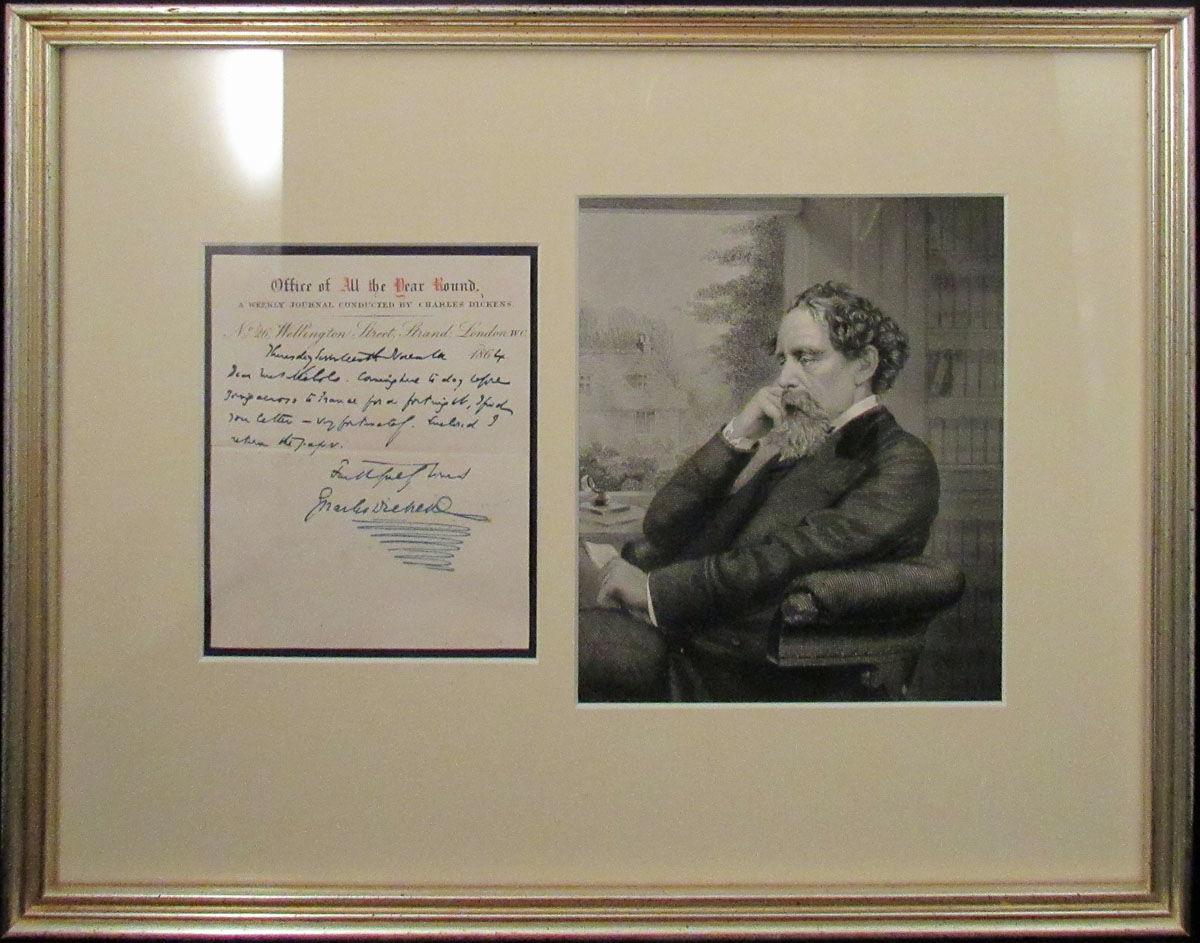 Office of All the Year Round,
A WEEKLY JOURNAL CONDUCTED BY CHARLES DICKENS.
No. 26, Wellington Street, Strand, London W.C.
Thursday Seventeenth November 1864
Dear. Coming here to day before
going across to France for a fortnight, I find
your letter — very fortunately. Enclosed I
return the paper.
Faithfully Yours
Charles Dickens